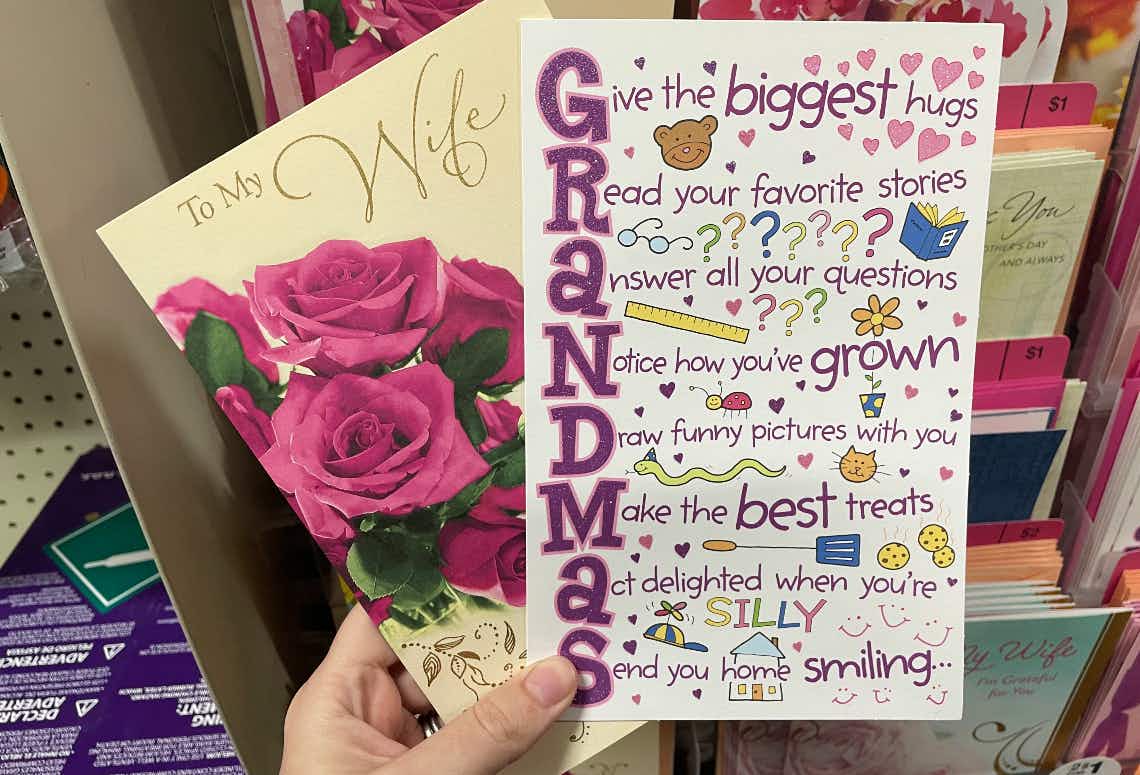 To My Wife
Give the biggest hugs
Read your favorite stories
Answer all your questions
Notice how you've grown
Draw funny pictures with you
Make the best treats
Act delighted when you're
SILLY
Send you home smiling...
$1
You
MOTHER'S DAY
AND ALWAYS
$1
$2
My Wife
I'm Grateful
for You
ADVERTENCE
ADVERTENCIA
DECLAR